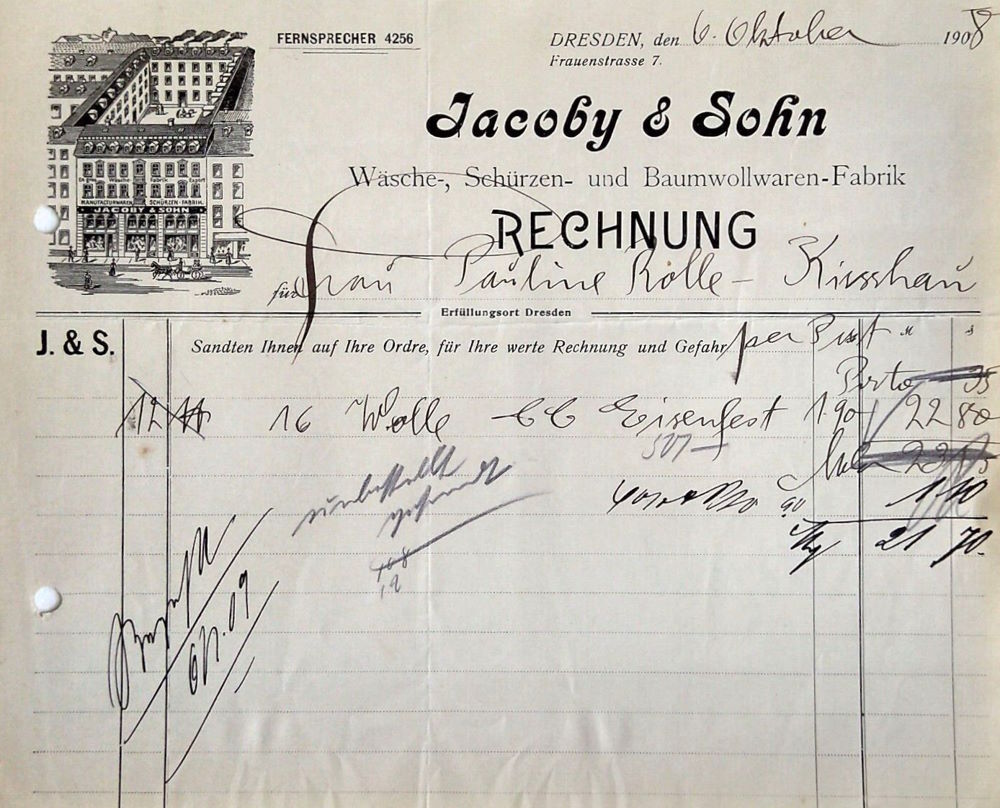 FERNSPRECHER 4256
DRESDEN, den 6. Oktober 1908
Frauenstrasse 7.
Jacoby & Sohn
Wäsche-, Schürzen- und Baumwollwaren-Fabrik
En gros Wäsche Fabrik Export
MANUFACTURWAREN SCHÜRZEN-FABRIK.
JACOBY & SOHN
RECHNUNG
für Frau Pauline Rolle -
Erfüllungsort Dresden
J. & S.
Sandten Ihnen auf Ihre Ordre, für Ihre werte Rechnung und Gefahr per Post
M
Porto 35
12 16 Wolle Eisenfest 1.90 22 80
23 15
unbestellt
gesandt
90 1 10
21 70